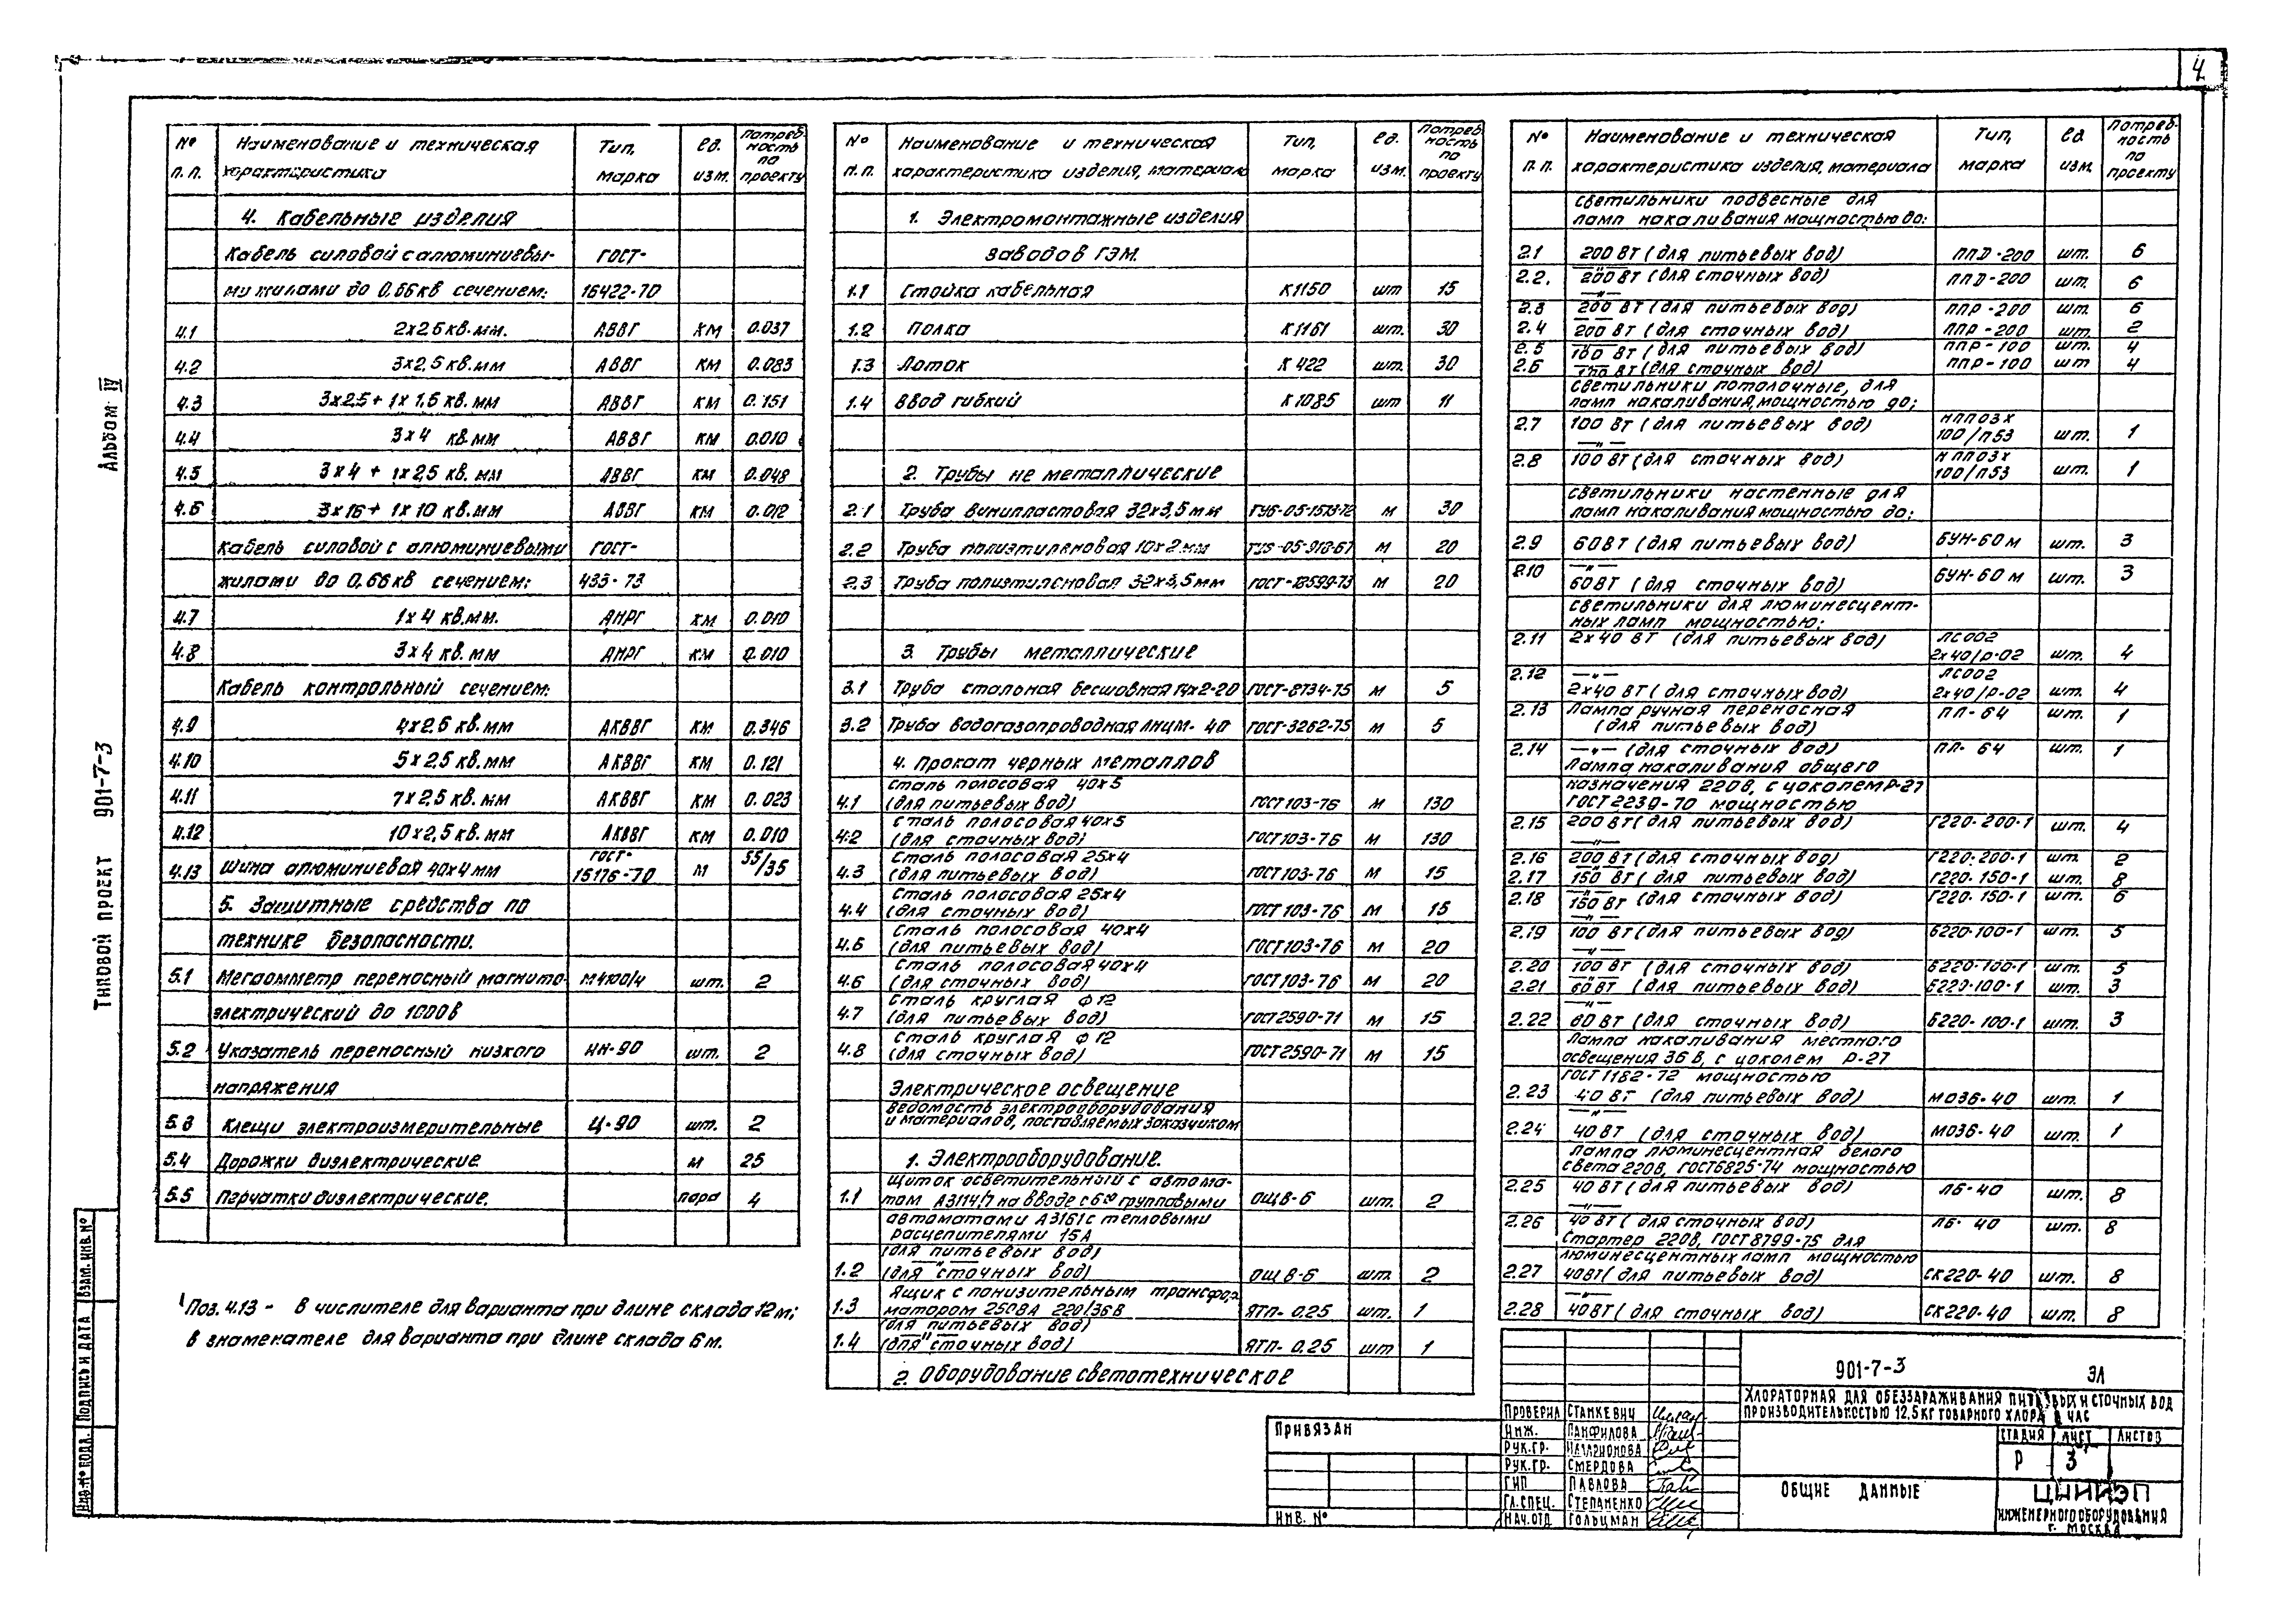 4
Альбом IV
Типовой проект 901-7-3
№ п.п. Наименование и техническая характеристика Тип, марка Ед. изм. Потребность по проекту
4. Кабельные изделия
Кабель силовой с алюминиевы- ГОСТ-
ми жилами до 0,66кв сечением: 16422-70
4.1 2х2,5 кв.мм. АВВГ КМ 0.037
4.2 3х2,5 кв.мм АВВГ КМ 0.083
4.3 3х2,5 + 1х1,5 кв.мм АВВГ КМ 0.151
4.4 3х4 кв.мм АВВГ КМ 0.010
4.5 3х4 + 1х2,5 кв.мм АВВГ КМ 0.048
4.6 3х16 + 1х10 кв.мм АВВГ КМ 0.012
Кабель силовой с алюминиевыми ГОСТ-
жилами до 0,66кв сечением: 433-73
4.7 1х4 кв.мм. АНРГ КМ 0.010
4.8 3х4 кв.мм АНРГ КМ 0.010
Кабель контрольный сечением:
4.9 4х2,5 кв.мм АКВВГ КМ 0.346
4.10 5х2,5 кв.мм АКВВГ КМ 0.121
4.11 7х2,5 кв.мм АКВВГ КМ 0.023
4.12 10х2,5 кв.мм АКВВГ КМ 0.010
4.13 Шина алюминиевая 40х4мм ГОСТ-15176-70 М 55/35
5. Защитные средства по
технике безопасности.
5.1 Мегаомметр переносный магнито- М4100/4 шт. 2
электрический до 1000в
5.2 Указатель переносный низкого НН-90 шт. 2
напряжения
5.3 Клещи электроизмерительные Ц-90 шт. 2
5.4 Дорожки диэлектрические м 25
5.5 Перчатки диэлектрические. пара 4
1 Поз. 4.13 - в числителе для варианта при длине склада 12м;
в знаменателе для варианта при длине склада 6м.
№ п.п. Наименование и техническая характеристика изделия, материала Тип, марка Ед. изм. Потребность по проекту
1. Электромонтажные изделия
заводов ГЭМ.
1.1 Стойка кабельная К1150 шт 15
1.2 Полка К1161 шт. 30
1.3 Лоток К422 шт. 30
1.4 Ввод гибкий К1085 шт 11
2. Трубы не металлические
2.1 Труба винипластовая 32х3,5мм м 30
2.2 Труба полиэтиленовая 10х2мм м 20
2.3 Труба полиэтиленовая 32х3,5мм ГОСТ-18599-73 м 20
3. Трубы металлические
3.1 Труба стальная бесшовная 14х2-20 ГОСТ-8734-75 м 5
3.2 Труба водогазопроводная 40 ГОСТ-3262-75 м 5
4. Прокат черных металлов
4.1 Сталь полосовая 40х5
(для питьевых вод) ГОСТ103-76 м 130
4.2 Сталь полосовая 40х5
(для сточных вод) ГОСТ103-76 м 130
4.3 Сталь полосовая 25х4
(для питьевых вод) ГОСТ103-76 м 15
4.4 Сталь полосовая 25х4
(для сточных вод) ГОСТ103-76 м 15
4.5 Сталь полосовая 40х4
(для питьевых вод) ГОСТ103-76 м 20
4.6 Сталь полосовая 40х4
(для сточных вод) ГОСТ103-76 м 20
4.7 Сталь круглая ф12
(для питьевых вод) ГОСТ2590-71 м 15
4.8 Сталь круглая ф12
(для сточных вод) ГОСТ2590-71 м 15
Электрическое освещение
Ведомость электрооборудования
и материалов, поставляемых заказчиком
1. Электрооборудование.
1.1 Щиток осветительный с автома-
том А3114/7 на вводе с 6ю групповыми ОЩВ-6 шт. 2
автоматами А3161 с тепловыми
расцепителями 15А
(для питьевых вод)
1.2 —"— (для сточных вод) ОЩВ-6 шт. 2
1.3 Ящик с понизительным трансфор-
матором 250ВА 220/36В ЯТП-0,25 шт. 1
(для питьевых вод)
1.4 —"— (для сточных вод) ЯТП-0,25 шт 1
2. Оборудование светотехническое
№ п.п. Наименование и техническая характеристика изделия, материала Тип, марка Ед. изм. Потребность по проекту
Светильники подвесные для
ламп накаливания мощностью до:
2.1 200 Вт (для питьевых вод) ППД-200 шт. 6
2.2. —"— 200 Вт (для сточных вод) ППД-200 шт. 6
2.3 —"— 200 Вт (для питьевых вод) ППР-200 шт. 6
2.4 —"— 200 Вт (для сточных вод) ППР-200 шт. 2
2.5 —"— 100 Вт (для питьевых вод) ППР-100 шт. 4
2.6 —"— 100 Вт (для сточных вод) ППР-100 шт 4
Светильники потолочные, для
ламп накаливания, мощностью до:
2.7 100 Вт (для питьевых вод) НПП03х100/П53 шт. 1
2.8 —"— 100 Вт (для сточных вод) НПП03х100/П53 шт. 1
Светильники настенные для
ламп накаливания мощностью до:
2.9 60Вт (для питьевых вод) БУН-60м шт. 3
2.10 —"— 60Вт (для сточных вод) БУН-60м шт. 3
Светильники для люминесцент-
ных ламп мощностью:
2.11 2х40 Вт (для питьевых вод) ЛС002 2х40/Р-02 шт. 4
2.12 —"— 2х40 Вт (для сточных вод) ЛС002 2х40/Р-02 шт. 4
2.13 Лампа ручная переносная ПЛ-64 шт. 1
(для питьевых вод)
2.14 —"— (для сточных вод) ПЛ-64 шт. 1
Лампа накаливания общего
назначения 220в, с цоколем Р-27
ГОСТ 2239-70 мощностью
2.15 200 Вт (для питьевых вод) Г220-200-1 шт. 4
2.16 —"— 200 Вт (для сточных вод) Г220-200-1 шт. 2
2.17 —"— 150 Вт (для питьевых вод) Г220-150-1 шт. 8
2.18 —"— 150 Вт (для сточных вод) Г220-150-1 шт. 6
2.19 —"— 100 Вт (для питьевых вод) Б220-100-1 шт. 5
2.20 —"— 100 Вт (для сточных вод) Б220-100-1 шт. 5
2.21 —"— 60 Вт (для питьевых вод) Б220-100-1 шт. 3
2.22 —"— 60 Вт (для сточных вод) Б220-100-1 шт. 3
Лампа накаливания местного
освещения 36 в, с цоколем Р-27
ГОСТ 1182-72 мощностью
2.23 40 Вт (для питьевых вод) МО36-40 шт. 1
2.24 —"— 40 Вт (для сточных вод) МО36-40 шт. 1
Лампа люминесцентная белого
света 220в, ГОСТ6825-74 мощностью
2.25 40 Вт (для питьевых вод) ЛБ-40 шт. 8
2.26 —"— 40 Вт (для сточных вод) ЛБ-40 шт. 8
Стартер 220в, ГОСТ 8799-75 для
люминесцентных ламп мощностью
2.27 40Вт (для питьевых вод) СК220-40 шт. 8
2.28 —"— 40Вт (для сточных вод) СК220-40 шт. 8
901-7-3 ЭЛ
Хлораторная для обеззараживания питьевых и сточных вод
производительностью 12,5кг товарного хлора в час
Проверил Станкевич
Инж. Панфилова
Рук.гр. Илларионова
Рук.гр. Смердова
ГИП Павлова
Гл.спец. Степаненко
Нач.отд Гольцман
Стадия Лист Листов
Р 3
Общие данные
ЦНИИЭП
инженерного оборудования
г. Москва
Привязан
Инв. №
Взам. инв. №
Подпись и дата
Инв. № подл.